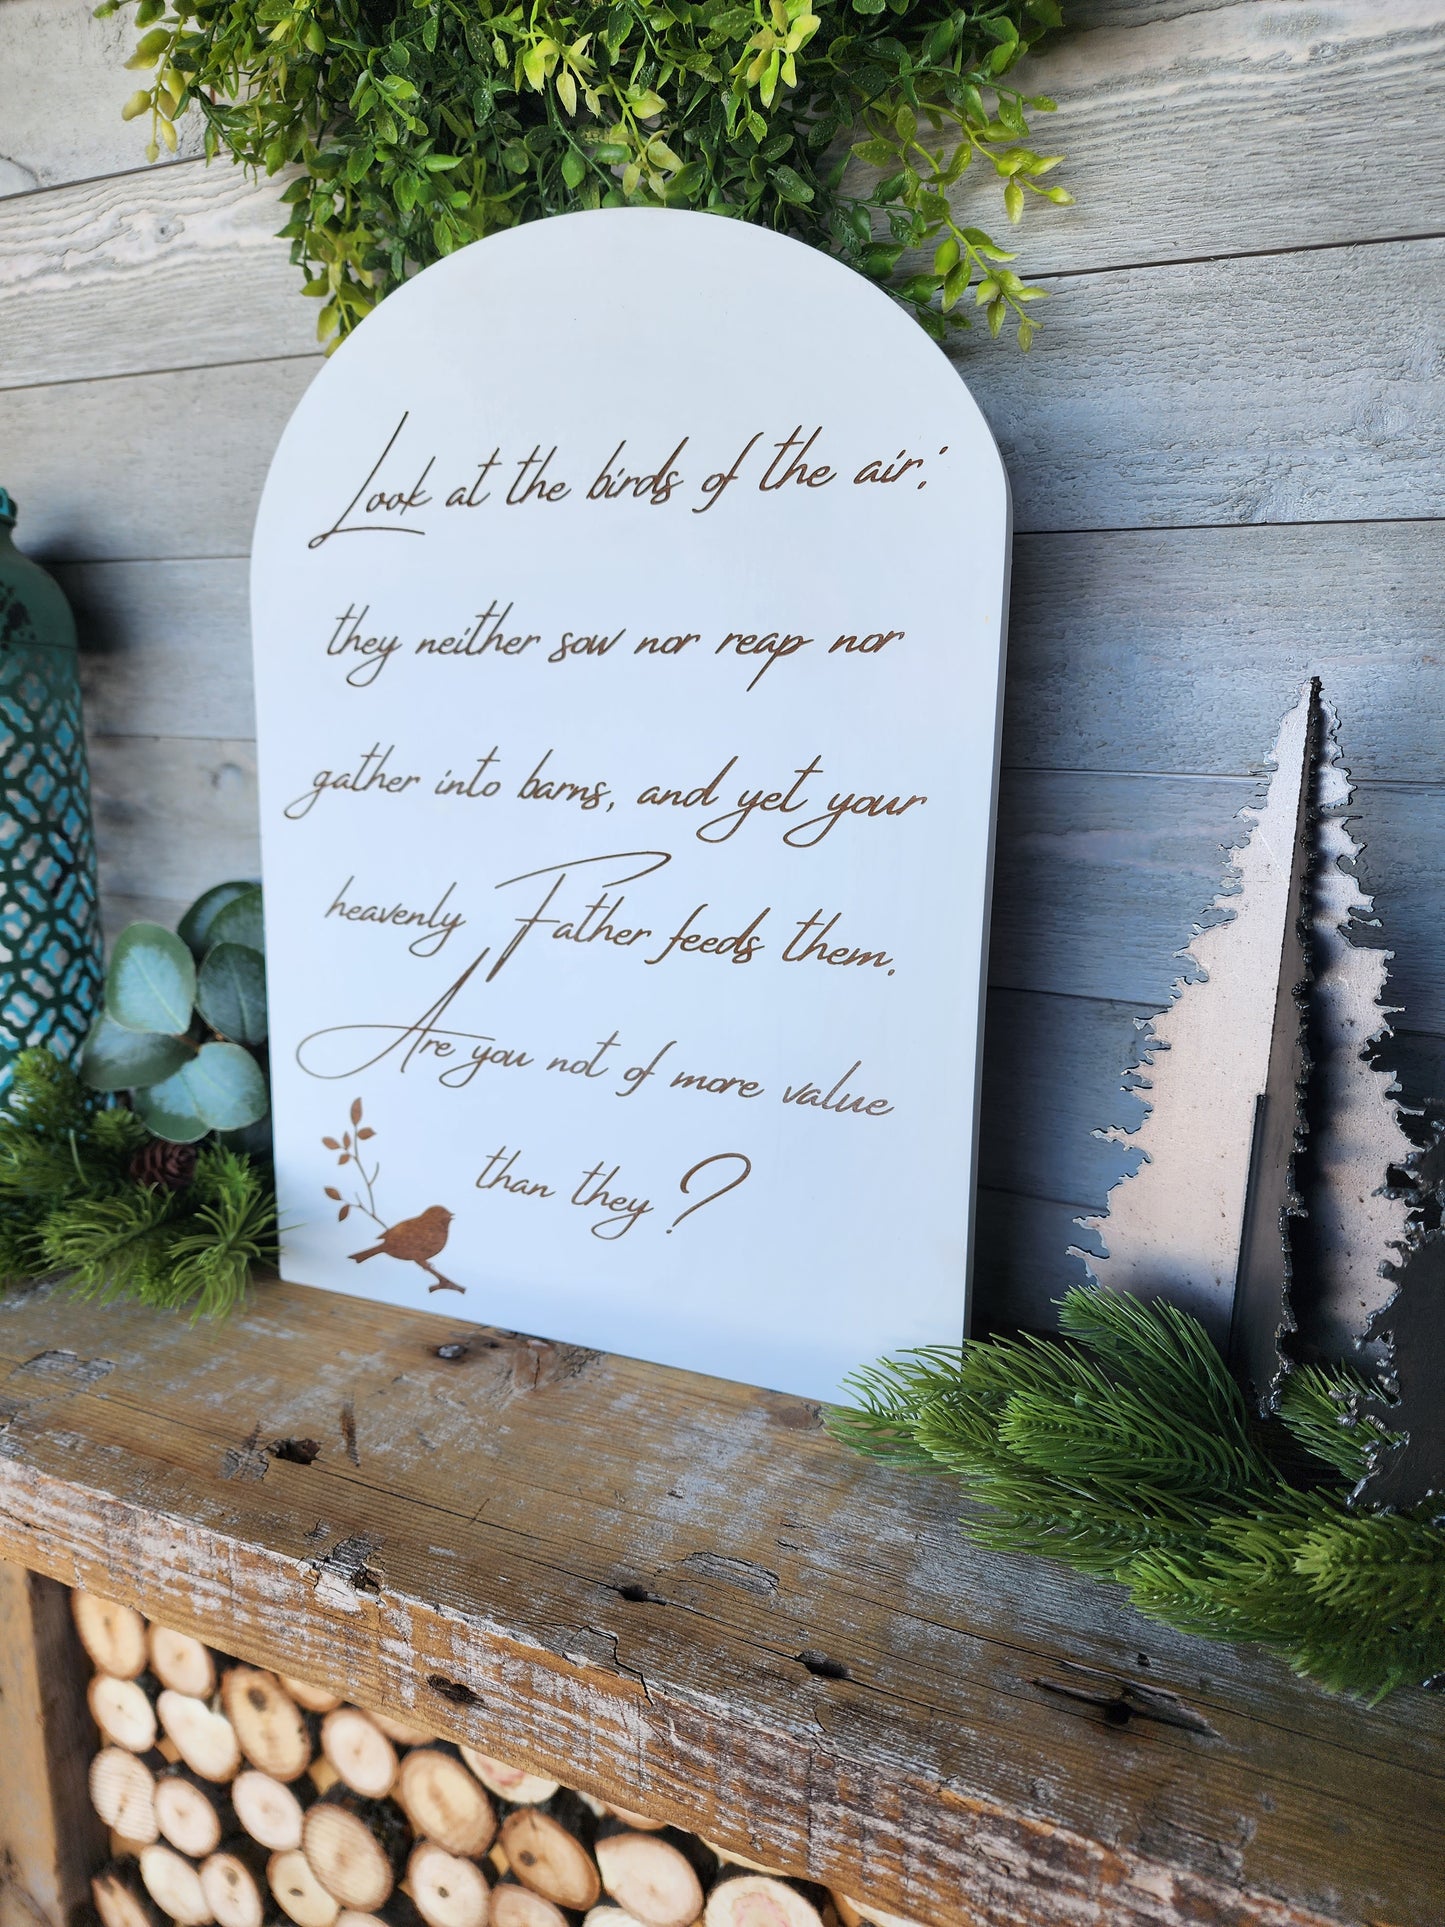 Look at the birds of the air;
they neither sow nor reap nor
gather into barns, and yet your
heavenly Father feeds them.
Are you not of more value
than they?